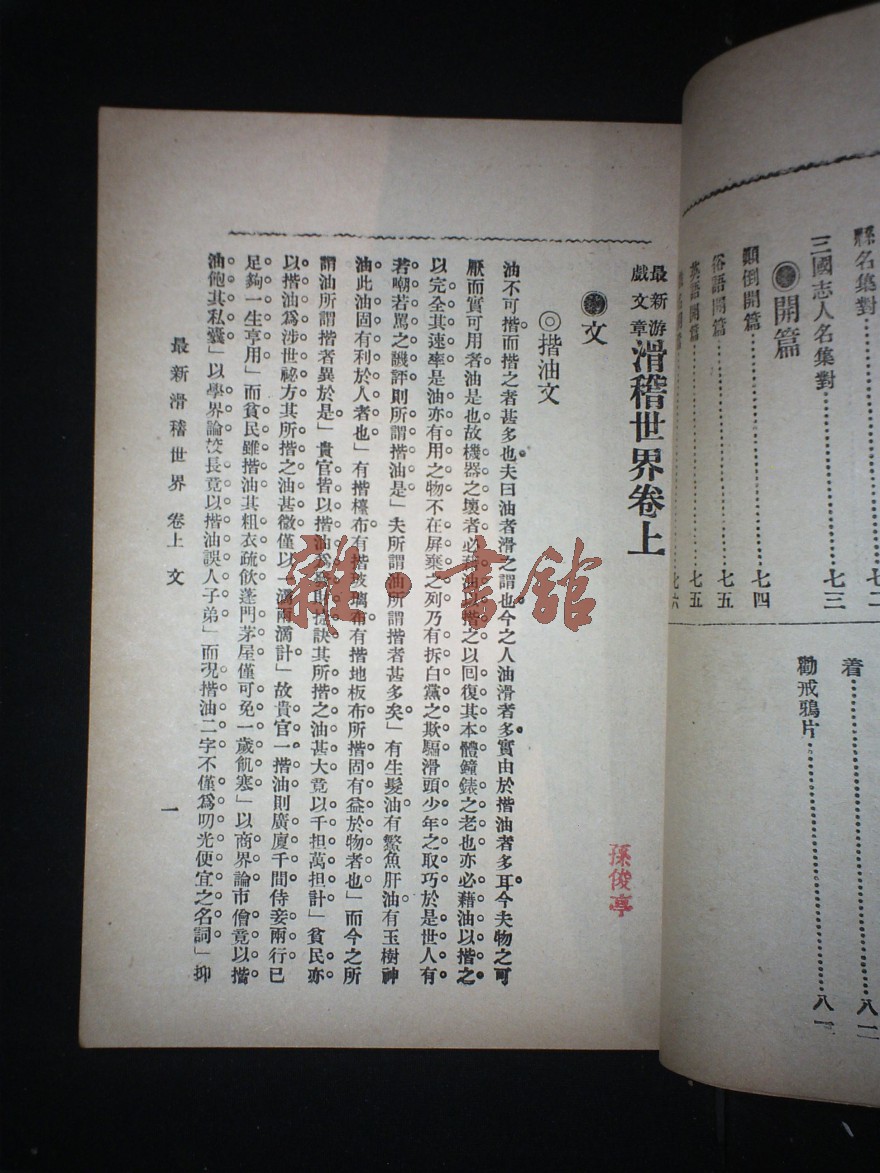 縣名集對……七二
三國志人名集對……七三
開篇
顚倒開篇……七四
俗語開篇……七五
英語開篇……七五
七六
着……八二
勸戒鴉片……八一
最新游戲文章 滑稽世界卷上
文
◎揩油文
油不可揩而揩之者甚多也夫曰油者滑之謂也今之人油滑者多實由於揩油者多耳今夫物之可
厭而實可用者油是也故機器之壞者必藉油以揩之以回復其本體鐘錶之老也亦必藉油以揩之
以完全其速率是油亦有用之物不在屏棄之列乃有拆白黨之欺騙滑頭少年之取巧於是世人有
若嘲若罵之譏評則所謂揩油是」夫所謂油所謂揩者甚多矣」有生髮油有鱉魚肝油有玉樹神
油此油固有利於人者也」有揩檯布有揩玻璃布有揩地板布所揩固有益於物者也」而今之所
謂油所謂揩者異於是」貴官皆以揩油爲 訣其所揩之油甚大竟以千担萬担計」貧民亦
以揩油爲涉世祕方其所揩之油甚微僅以一滴兩滴計」故貴官一揩油則廣廈千間侍妾兩行已
足夠一生享用」而貧民雖揩油其粗衣疏飲蓬門茅屋僅可免一歲飢寒」以商界論市儈竟以揩
油飽其私囊」以學界論校長竟以揩油誤人子弟」而况揩油二字不僅爲叨光便宜之名詞」抑
最新滑稽世界 卷上 文
一
孫俊亭
雜·書舘